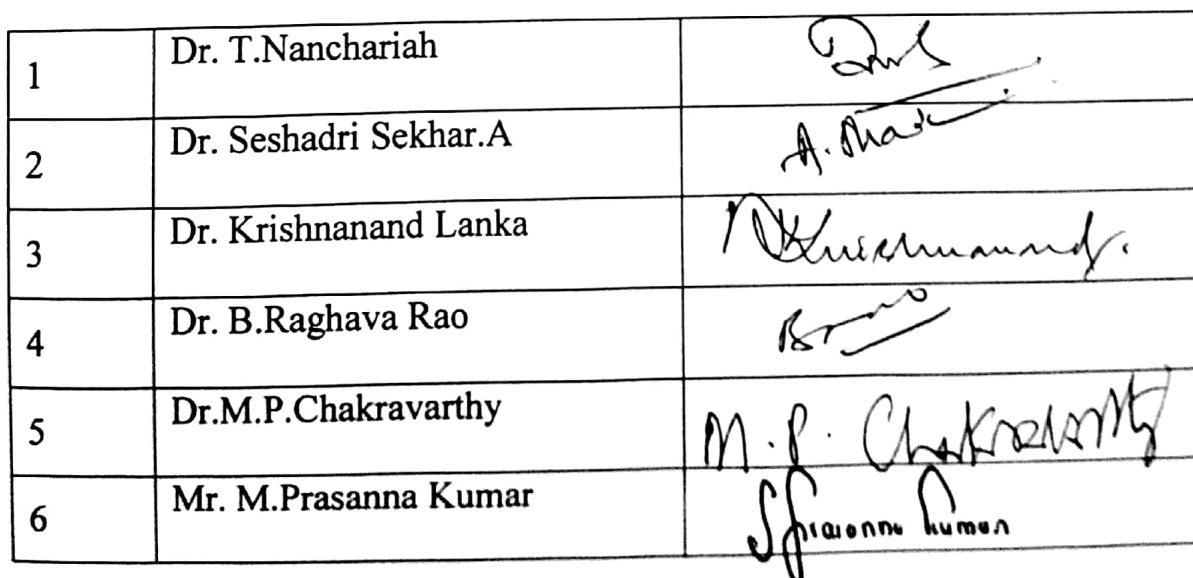 1 Dr. T.Nanchariah
2 Dr. Seshadri Sekhar.A
3 Dr. Krishnanand Lanka Krishnanand.
4 Dr. B.Raghava Rao
5 Dr.M.P.Chakravarthy M. P. Chakravarthy
6 Mr. M.Prasanna Kumar Prasanna Kumar